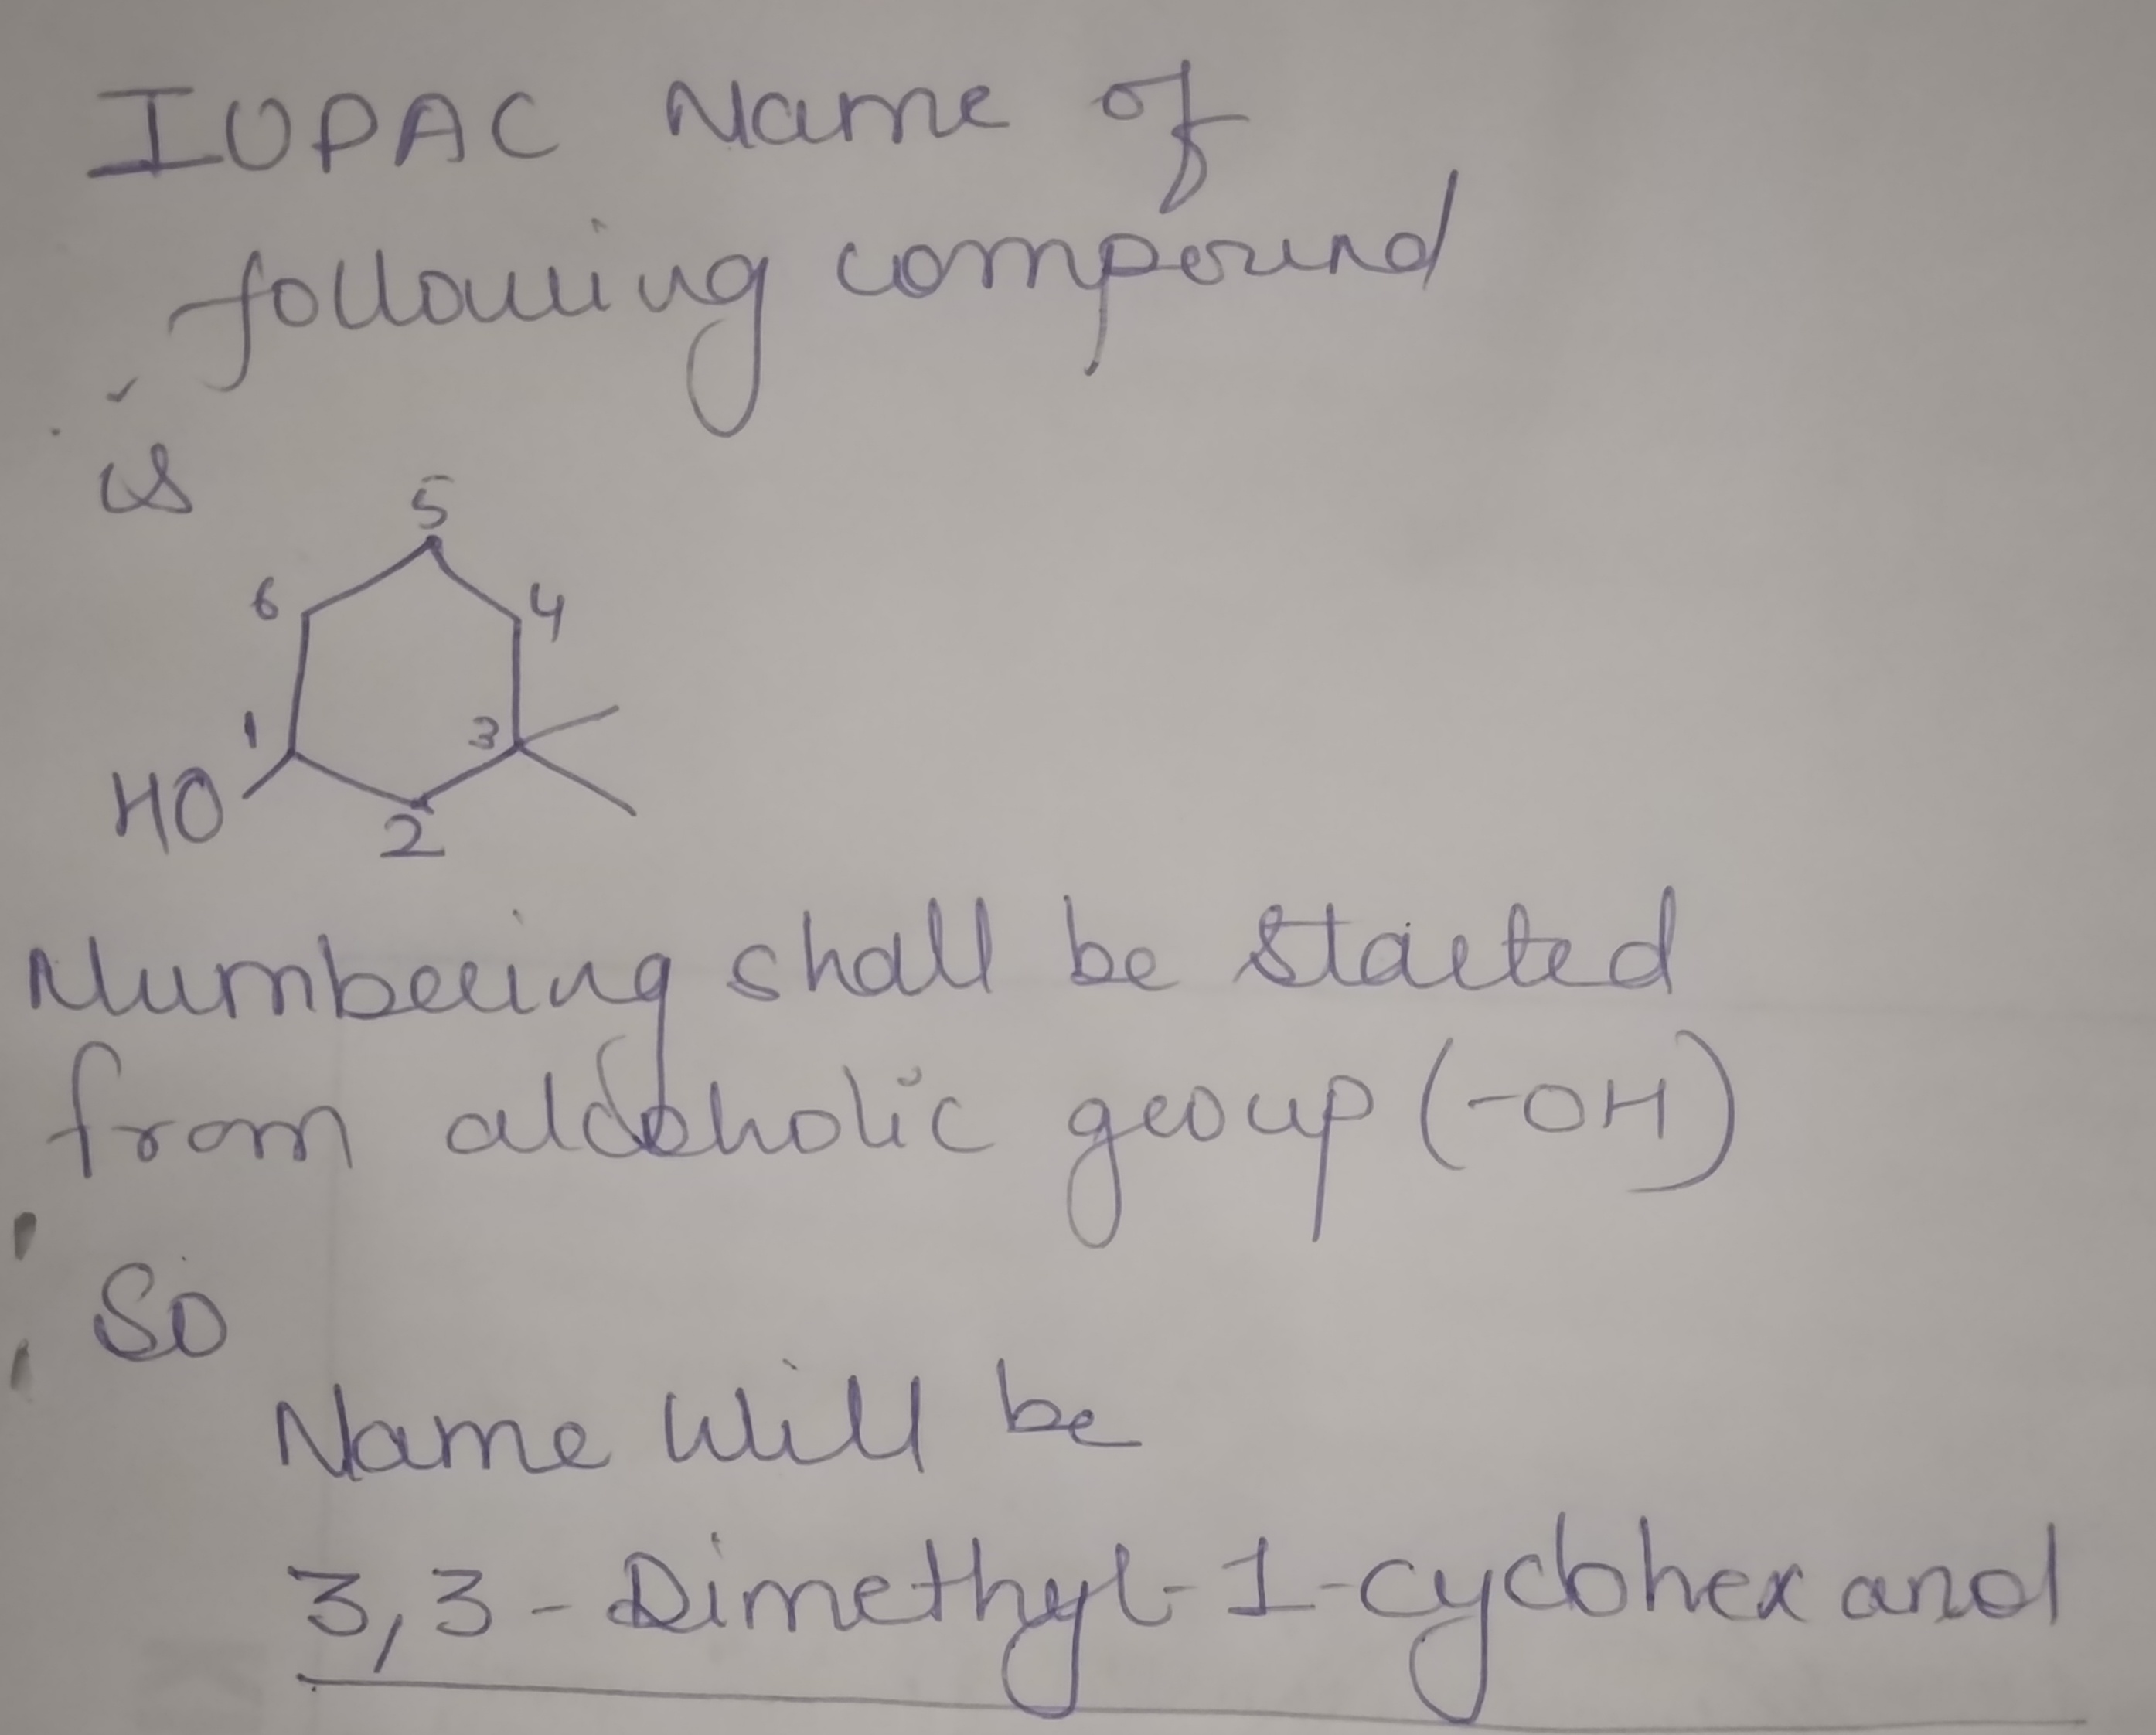 IUPAC Name of
following compound
is
5
6
4
1
3
HO
2
Numbering shall be started
from alcoholic group (-OH)
So
Name will be
3,3-Dimethyl-1-cyclohexanol